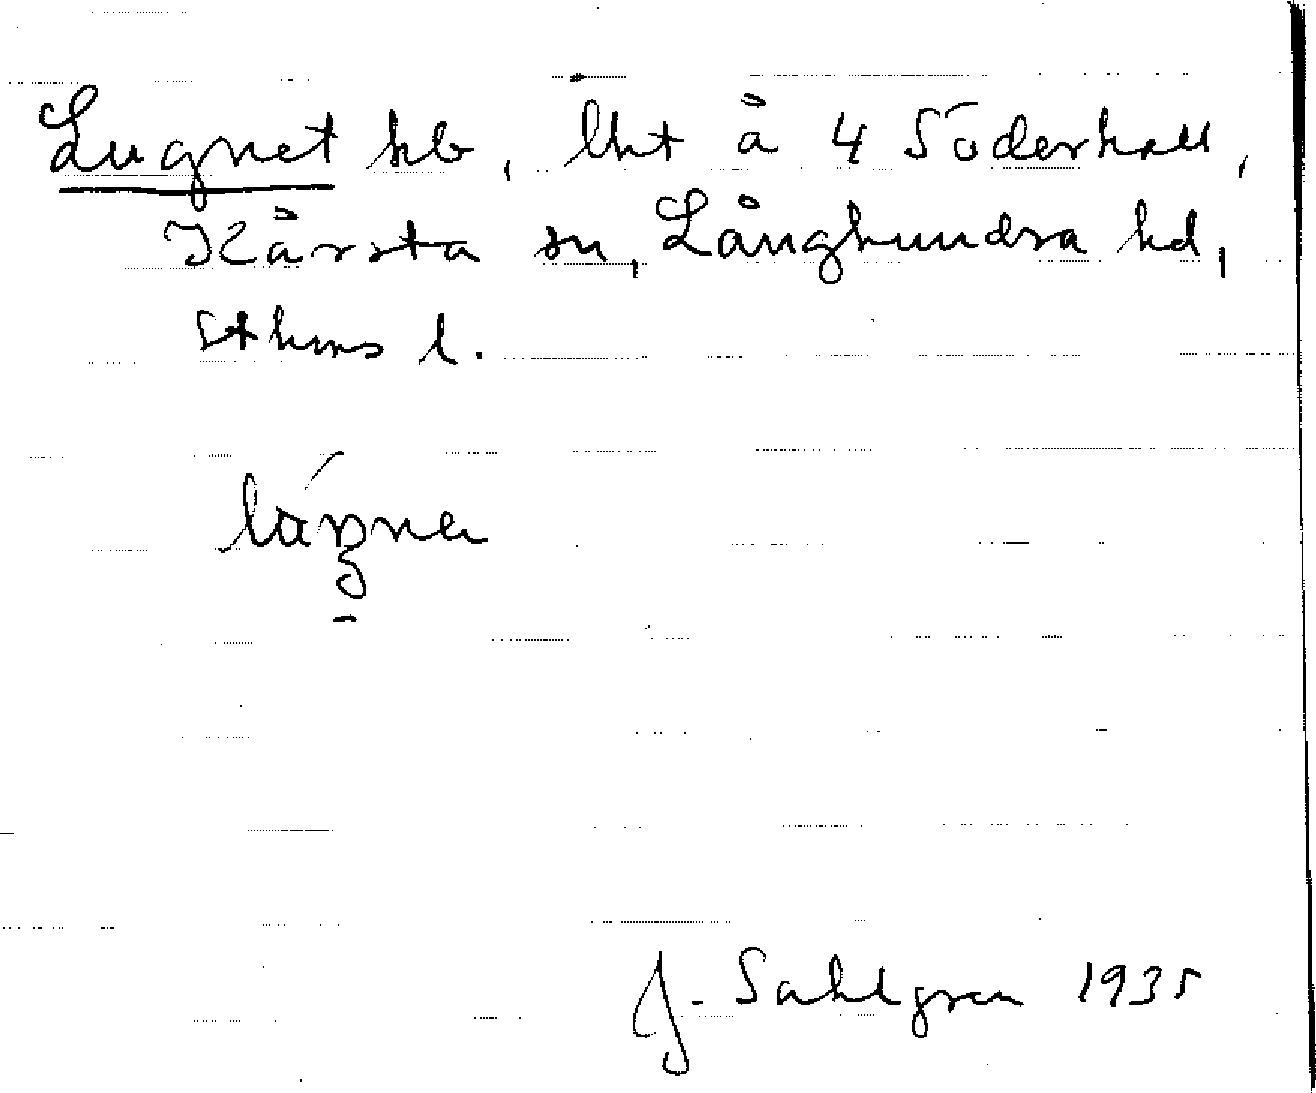 Lugnet hb, lht å 4 Söderhall,
Kårsta sn, Långhundra hd,
Sthms l.
J. Sahlgren 1935